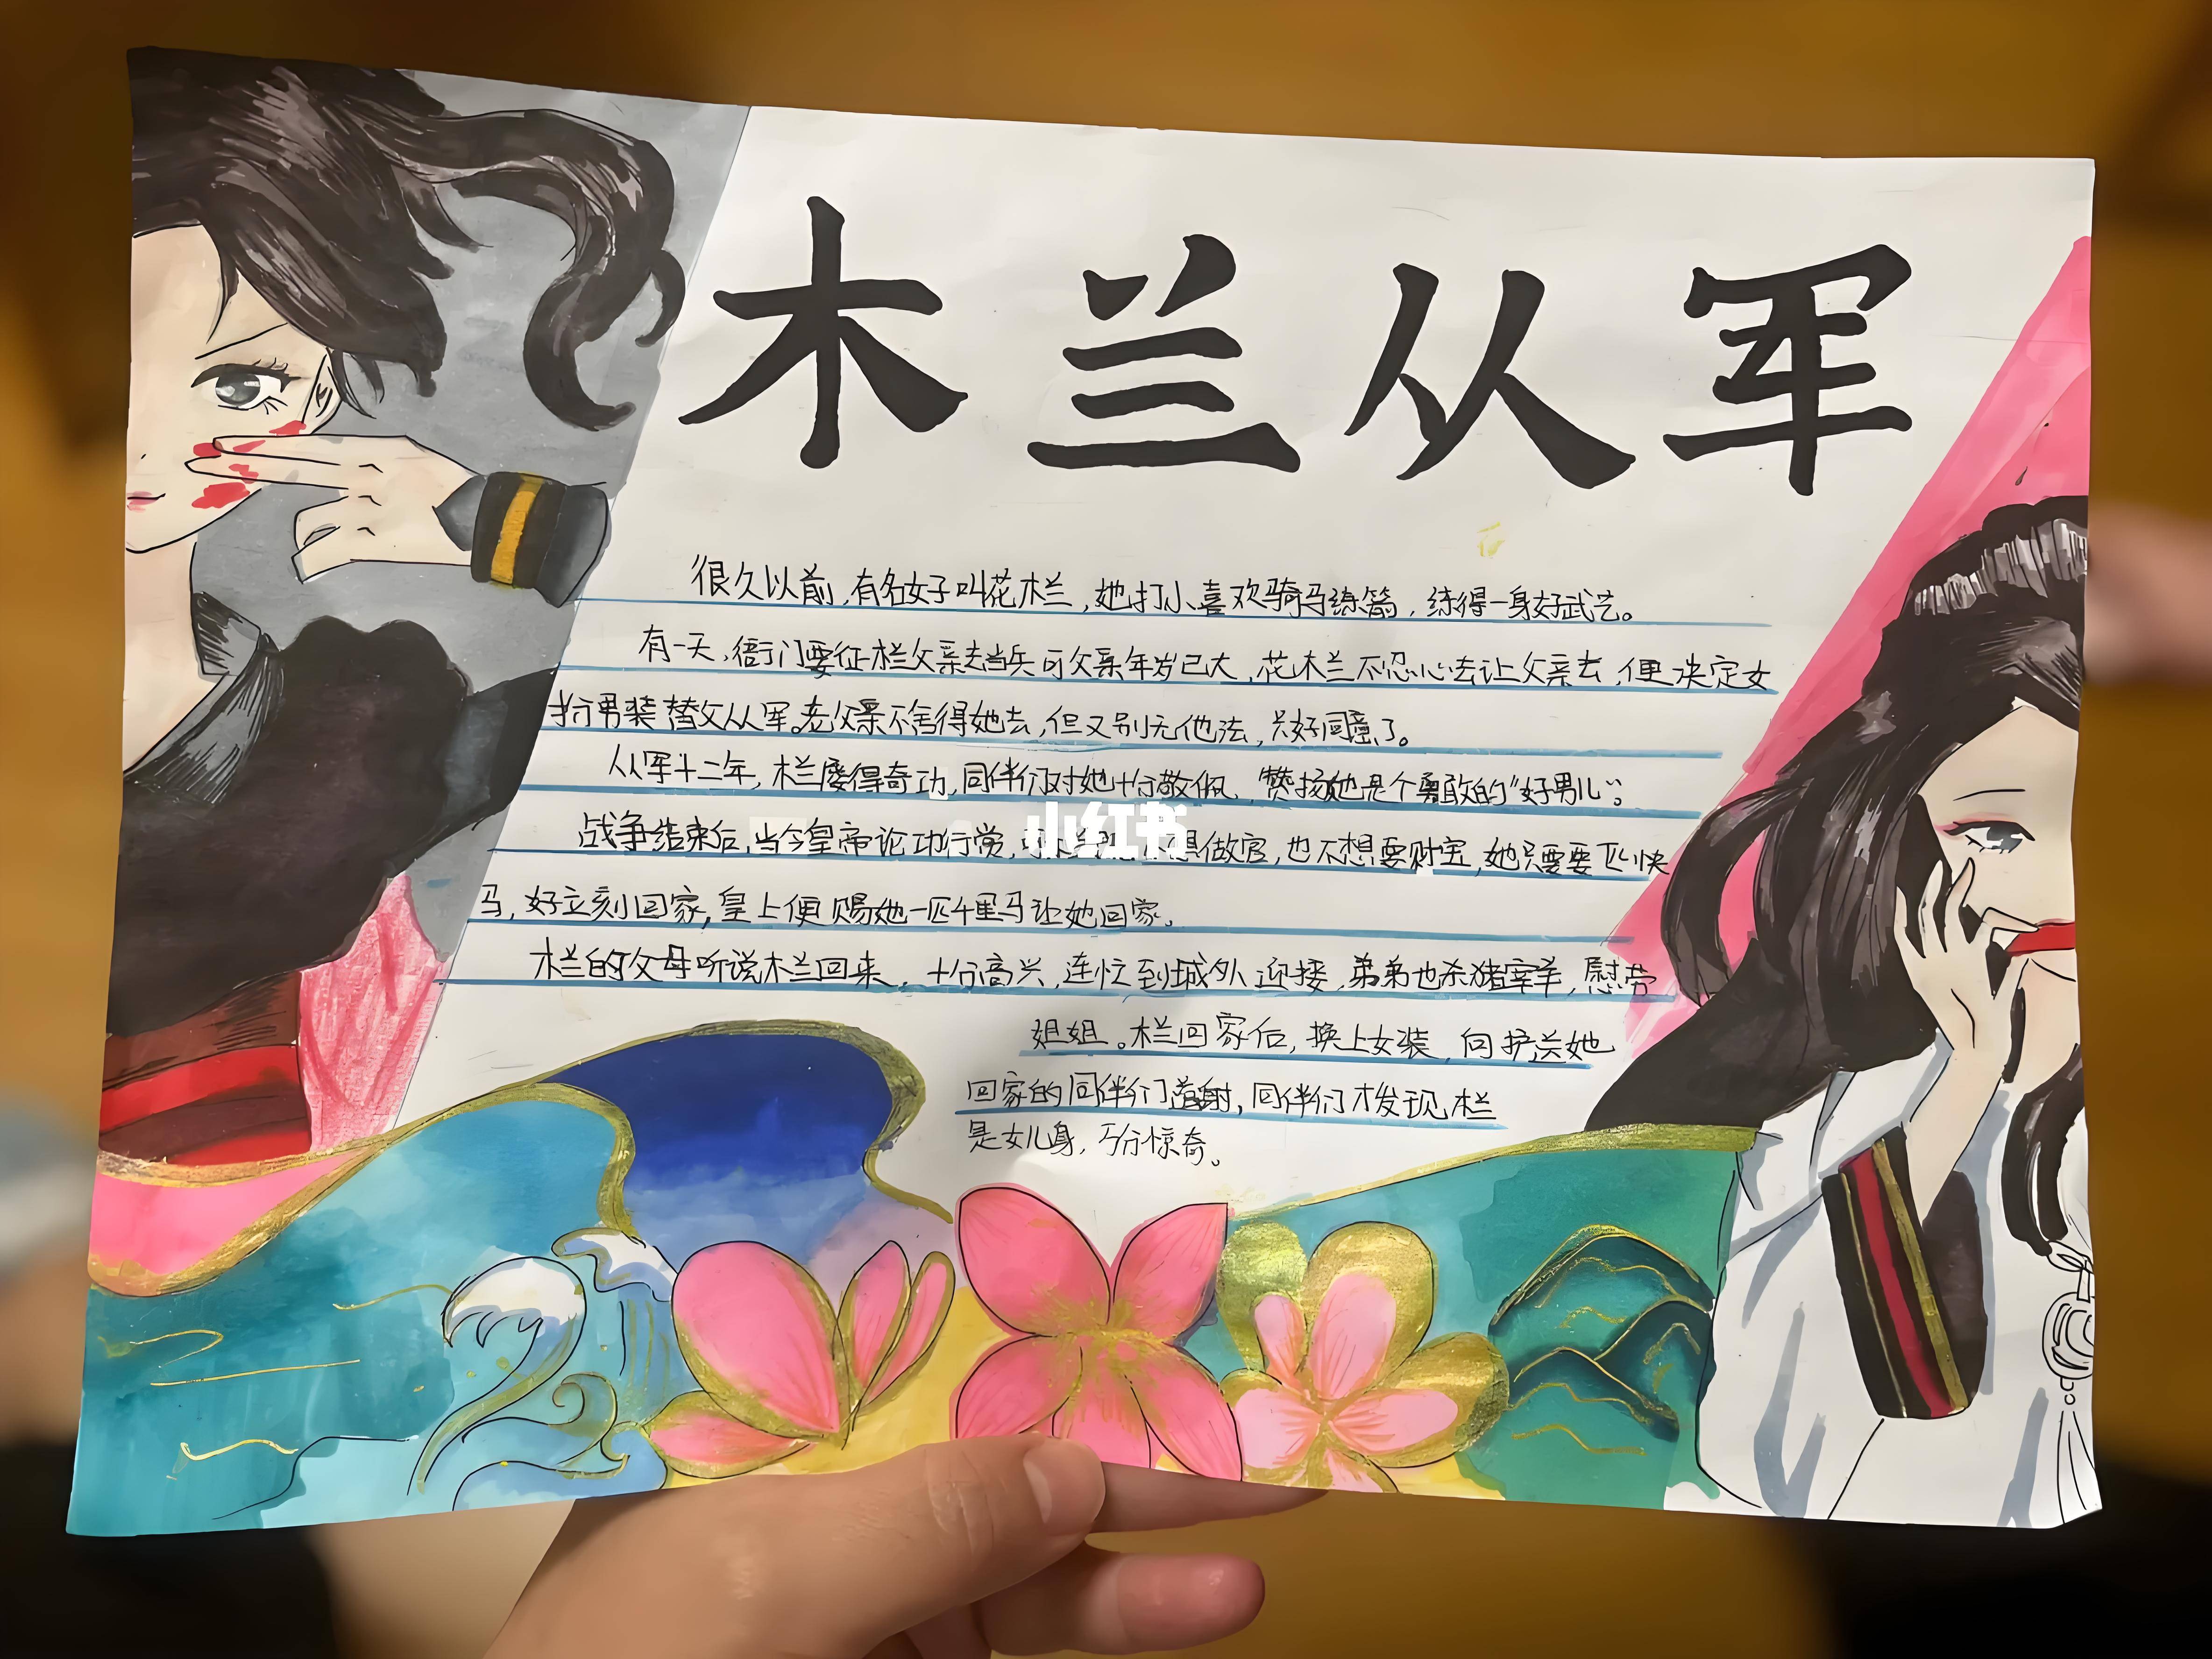 木兰从军
很久以前,有名女子叫花木兰,她打小喜欢骑马练箭,练得一身好武艺。
有一天,衙门要征木兰父亲去当兵可父亲年岁已大,花木兰不忍心去让父亲去,便决定女
扮男装替父从军。老父亲不舍得她去,但又别无他法,只好同意了。
从军十二年,木兰屡得奇功,同伴们对她十分敬佩,赞扬她是个勇敢的“好男儿”。
战争结束后,当今皇帝论功行赏,想做官,也不想要财宝,她只要要一匹快
马,好立刻回家,皇上便赐她一匹千里马让她回家。
木兰的父母听说木兰回来,十分高兴,连忙到城外迎接,弟弟也杀猪宰羊,慰劳
姐姐。木兰回家后,换上女装,向护送她
回家的同伴们道谢,同伴们才发现木兰
是女儿身,万分惊奇。
小红书